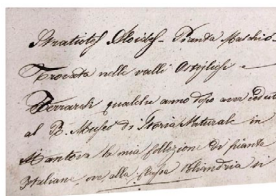 Stratiotes Aloides - Pianta Maschio -
Trovata nelle valli Ostigliesi -
Ferraresi qualche anno dopo aver
al R. Museo di Storia Naturale in
Mantova la mia collezione di piante
Italiane, ove alla